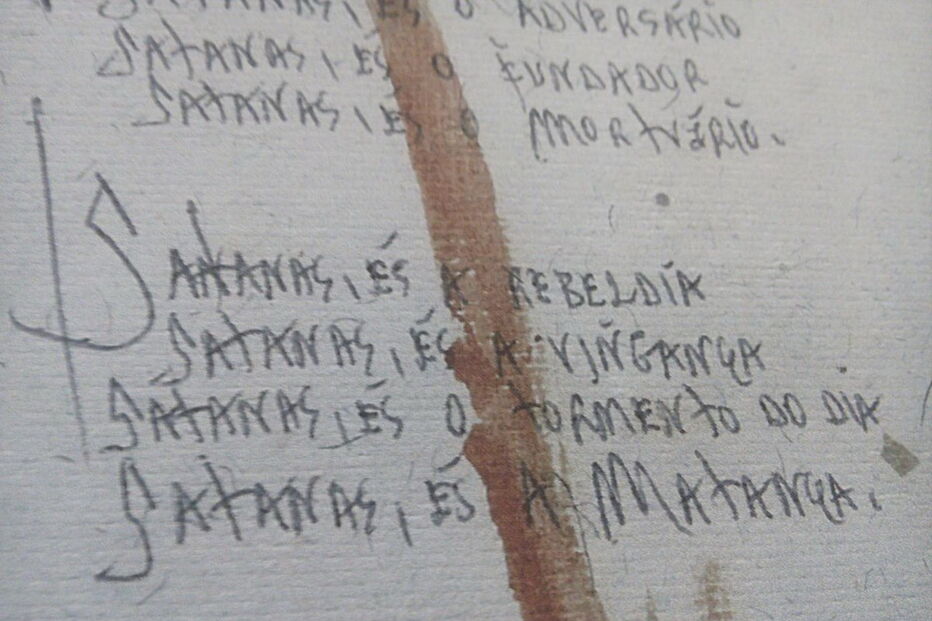 SATANAS, ÉS O ADVERSÁRIO
SATANAS, ÉS O FUNDADOR
SATANAS, ÉS O MORTUÁRIO.
SATANAS, ÉS A REBELDIA
SATANAS, ÉS A VINGANÇA
SATANAS, ÉS O TORMENTO DO DIA
SATANAS, ÉS A MATANÇA.